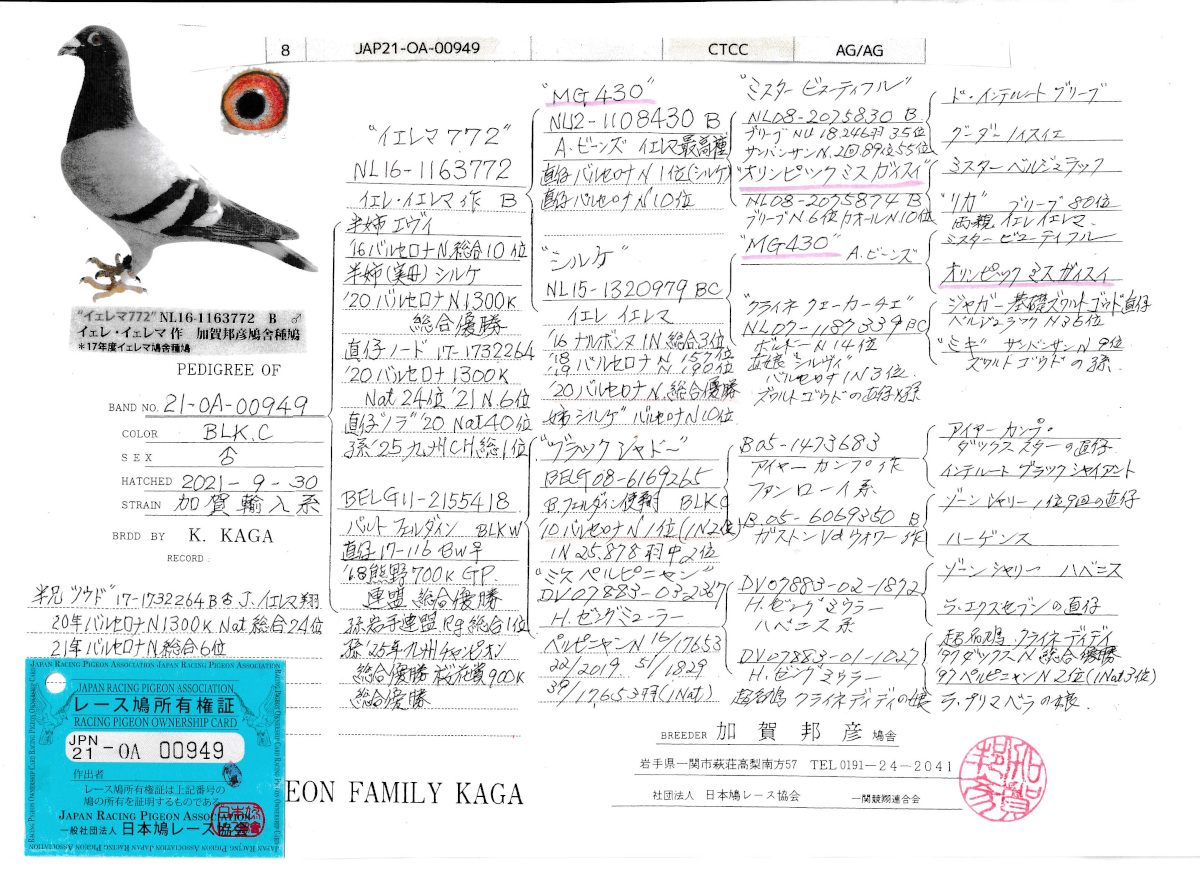 8 JAP21-OA-00949 CTCC AG/AG
"イエレマ772" NL16-1163772 B ♂
イェレ・イエレマ作 加賀邦彦鳩舎種鳩
*17年度イエレマ鳩舎種鳩
PEDIGREE OF
BAND NO. 21-OA-00949
COLOR BLK.C
SEX ♂
HATCHED 2021-9-30
STRAIN 加賀輸入系
BRDD BY K. KAGA
RECORD:
半兄"ツウド"17-1732264 B ♂ J.イエレマ翔
20年バルセロナN1300K Nat総合24位
21年バルセロナN総合6位
JAPAN RACING PIGEON ASSOCIATION
レース鳩所有権証
RACING PIGEON OWNERSHIP CARD
JPN
21-OA 00949
作出者
レース鳩所有権証は上記番号の
鳩の所有を証明するものである
JAPAN RACING PIGEON ASSOCIATION
一般社団法人 日本鳩レース協会
EON FAMILY KAGA
"イエレマ772"
NL16-1163772
イエレ・イエレマ作 B
半姉 エヴィ
'16バルセロナN.総合10位
半姉(実母)シルケ
'20バルセロナN1300K
総合優勝
直仔ノード 17-1732264
'20バルセロナ1300K
Nat 24位 '21N.6位
直仔"ノラ"'20 Nat40位
孫'25九州CH総1位
BELG11-2155418
バルト フェルダイン BLKW
直仔17-116 BW♀
'18熊野700K GP.
連盟 総合優勝
孫岩手連盟Rg総合1位
孫'25年九州チャンピオン
総合優勝 桜花賞900K
総合優勝
"MG430"
NL12-1108430 B
A.ビーンズ イエレマ最高種
直仔バルセロナN1位(シルケ)
直仔バルセロナN10位
"シルケ"
NL15-1320979 BC
イエレ イエレマ
'16ナルボンヌ1N総合3位
'18バルセロナN157位
'19バルセロナN190位
'20バルセロナN.総合優勝
姉シルゲ"バルセロナN10位
"ブラックシャドー"
BELG08-6169265
B.フェルダイン使翔 BLKC
'10バルセロナN1位(IN2位)
IN25.878羽中2位
"ミスペルピニャン"
DV07883-03-2367
H.ゼングミューラー
ペルピニャンN 16/17653
22/2019 51/1829
39/17,653羽(1Nat)
"ミスタービューティフル"
NL08-2075830 B
ブリーブNU18.246羽35位
サンバンサンN.2回89位55位
"オリンピックミスガイスイ"
NL08-2075874 B
ブリーブN6位カオールN10位
"MG430" A.ビーンズ
"クライネクェーカーチェ"
NL07-1187339 BC
ボルドーN14位
直娘"シルヴィ"
バルセロナIN3位
ズワルトゴウドの直仔×孫
B05-1473683
アイヤーカンプ作
ファンローイ系
B.05-6069350 B
ガストンVdウォワー作
DV07883-02-1872
H.ゼングミウラー
ハベニス系
DV07883-01-1027
H.ゼングミウラー
超名鳩 クライネディディの娘
ド・インテルートブリーブ
グーダーノイスイエ
ミスターベルジュラック
"リカ" ブリーブ80位
両親イエレイエレマ
ミスタービューティフル
オリンピックミスガイスイ
ジャガー基礎ズワルトゴウド直仔
ベルジュラックN35位
"ミキ" サンバンサンN9位
ズワルトゴウドの孫
アイヤーカンプ・
ダックススターの直仔
インテルートブラックジャイアント
ゾーンジャリー1位9回の直仔
ハーゲンス
ゾーンジャリー ハベニス
ラ.エクスセブンの直仔
超銘鳩 クライネディディ
'97ダックスN総合優勝
97ペルピニャンN2位(1Nat3位)
ラ・プリマベラの娘
BREEDER 加賀邦彦鳩舎
岩手県一関市萩荘高梨南方57 TEL0191-24-2041
社団法人 日本鳩レース協会 一関競翔連合会